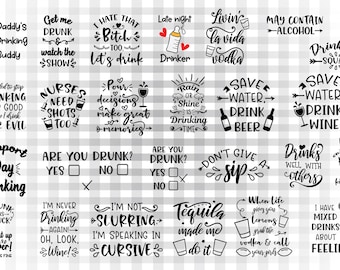 Daddy's
Drinking
Buddy
Get me
DRUNK
and
watch the
SHOW!
I HATE THAT
Bitch
TOO
Let's drink
Late night
Drinker
Livin'
la vida
vodka
MAY CONTAIN
ALCOHOL
Drunk
EVIL
NURSES
NEED
SHOTS
TOO
Pour
decisions
make great
memories
Rain
or
Shine
it's
Drinking
TIME
SAVE
WATER,
DRINK
BEER
SAVE
WATER,
DRINK
WINE
Day
Drinking
ARE YOU DRUNK?
YES
NO
ARE YOU
DRUNK?
YES
NO
DON'T GIVE
A
sip
Drinks
WELL WITH
others
I'M NEVER
Drinking
AGAIN!
OH, LOOK,
Wine!
I'M NOT
SLURRING
I'M SPEAKING IN
CURSIVE
Tequila
made me
do it
When Life
gives you
Lemons
vodka & call
I HAVE
MIXED
DRINKS
ABOUT
FEELIN